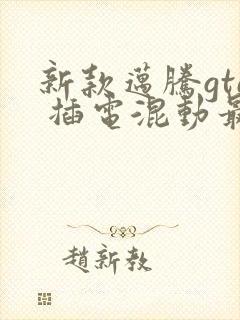 新款邁騰gte
插電混動最
趙新教